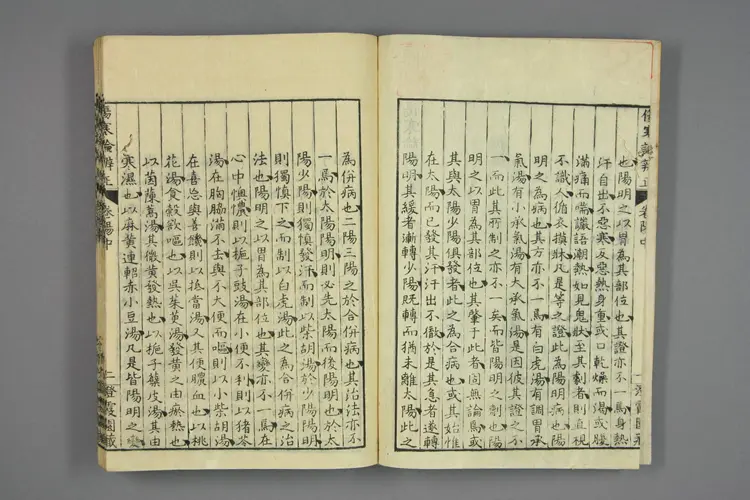 傷寒論辨正 卷陽中
也陽明之以胃為其部位也其證亦不一焉身熱
汗自出不惡寒反惡熱身重或口乾燥而渴或腹
滿痛而喘讝語潮熱如見鬼狀至其劇者則直視
不識人循衣摸牀凡是等之證此為陽明病也陽
明之為病也其方亦不一焉有白虎湯有調胃承
氣湯有小承氣湯有大承氣湯是因彼其證之不
一而此其所制之亦不一矣而皆陽明之制也陽
明之以胃為其部位也其肇于此者固無論焉或
其與太陽少陽俱發者此之為合病也或其始惟
在太陽而已發其汗汗出不徹於是其急者遂轉
陽明其緩者漸轉少陽既轉而猶未離太陽此之
為併病也二陽三陽之於合併病也其治法亦不
一焉於太陽陽明則必先太陽而後陽明也於太
陽少陽則獨慎發汗而制以柴胡湯於少陽陽明
則獨慎下之而制以白虎湯此之為合併病之治
法也陽明之以胃為其部位也其變亦不一焉在
心中懊憹則以梔子豉湯在小便不利則以猪苓
湯在胸脇滿不去與不大便而嘔則以小柴胡湯
在喜忘與善饑則以抵當湯又其便膿血也以桃
花湯食穀欲嘔也以吳茱萸湯發黃之由瘀熱也
以茵蔯蒿湯其微黃發熱也以梔子蘗皮湯其由
寒濕也以麻黃連軺赤小豆湯凡是皆陽明之變
傷寒論辨正 卷陽中 二 澄霞園藏